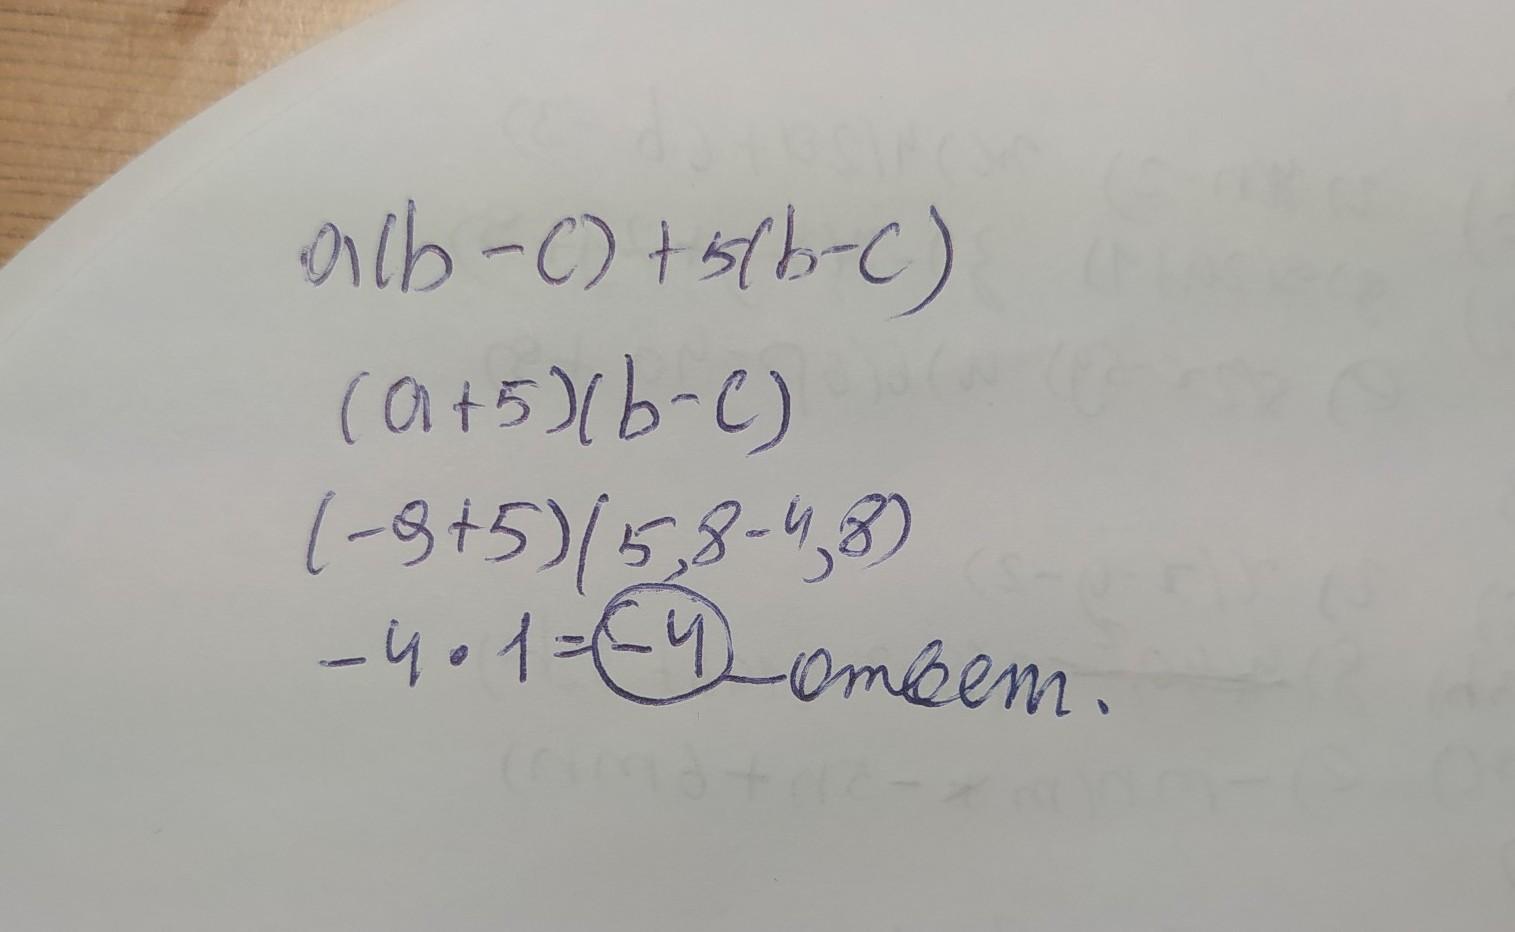 a(b-c)+5(b-c)
(a+5)(b-c)
(-9+5)(5,8-4,8)
-4•1=-4 - ответ.